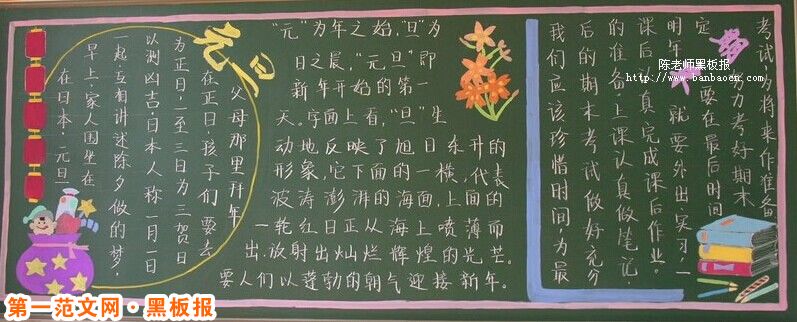 元旦
在日本，元旦
早上，家人围坐在
一起，互相讲述除夕做的梦，
以测凶吉。日本人称一月一日
为正日，一至三日为三贺日
在正日，孩子们要去
父母那里拜年
“元”为年之始，“旦”为
日之晨，“元旦”即
新年开始的第一
天。字面上看，“旦”生
动地反映了旭日东升的
形象，它下面的一横，代表
波涛澎湃的海面，上面的
一轮红日正从海上喷薄而
出，放射出灿烂辉煌的光芒。
要人们以蓬勃的朝气迎接新年。
我们应该珍惜时间，为最
后的期末考试做好充分
的准备，上课认真做笔记，
课后认真完成课后作业。
明年 就要外出实习，一
定 要在最后时间
努力考好期末
考试，为将来作准备
陈老师黑板报
http://www.banbaocn.com
第一范文网·黑板报